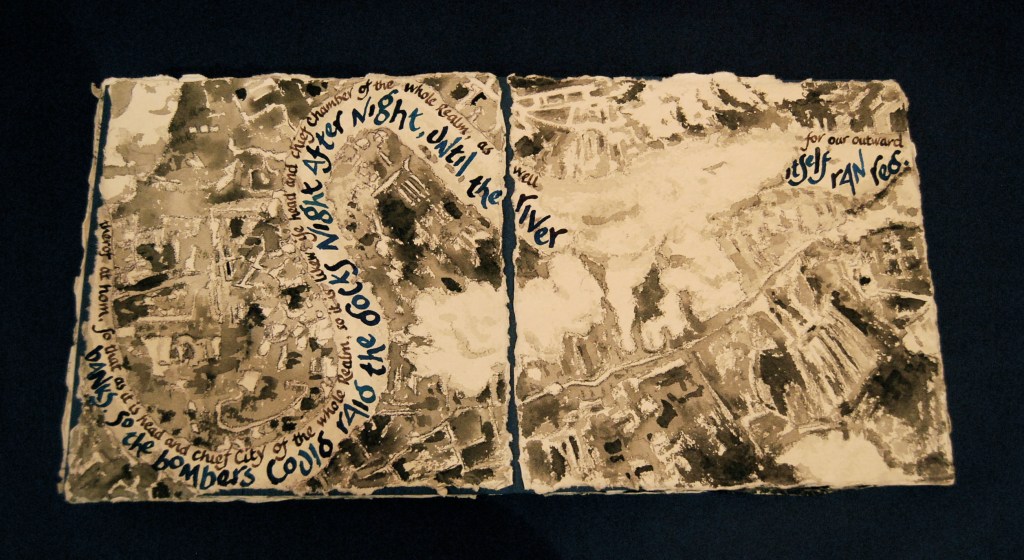 at hom, so that as it is head and chief City of the whole Realm, so it is ye head and chief Chamber of the whole Realm, as well for our outward
banks. So the bombers could raid the docks Night after Night, until the river itself ran red.